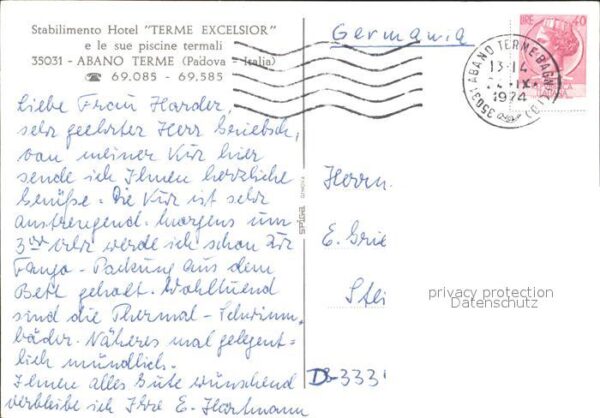 Stabilimento Hotel "TERME EXCELSIOR"
e le sue piscine termali
35031 - ABANO TERME (Padova - Italia)
☎ 69.085 - 69.585
Germania
LIRE 40
35031 ABANO TERME BAGNI (PD)
13-14
24 IX
1974
Liebe Frau Harder,
sehr geehrter Herr Griebsch,
von meiner Kur hier
sende ich Ihnen herzliche
Grüße. Die Kur ist sehr
anstrengend. Morgens um
3 Uhr werde ich schon zur
Fango - Packung aus dem
Bett geholt. Wohltuend
sind die Thermal - Schwimm-
bäder. Näheres mal gelegent-
lich mündlich.
Ihnen alles Gute wünschend
verbleibe ich Ihre E. Hartmann
Herrn
E. Grie
Stei
D-333
privacy protection
Datenschutz